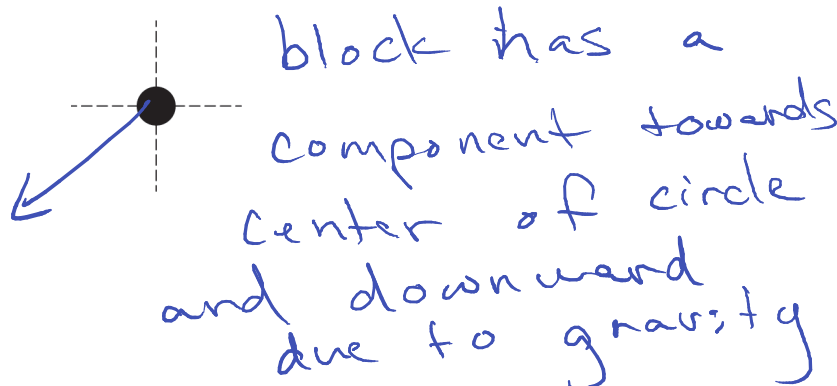 block has a
component towards
center of circle
and downward
due to gravity